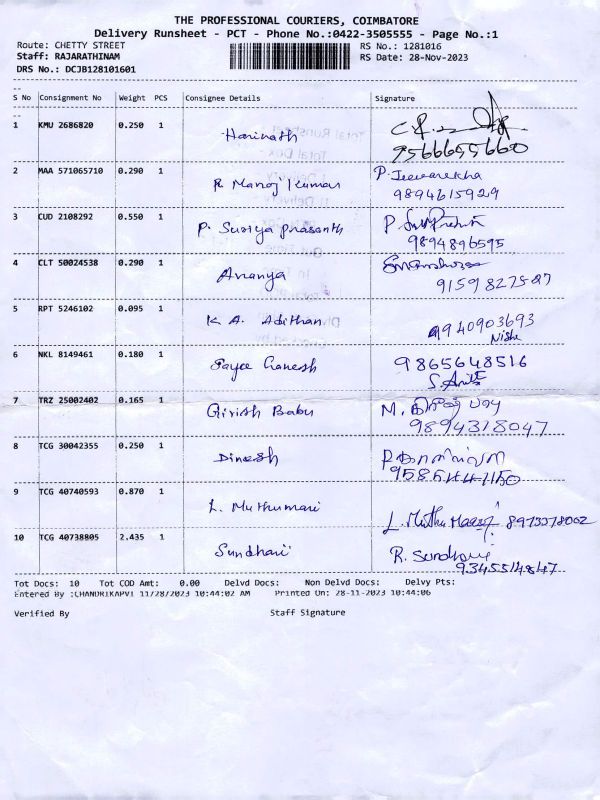 THE PROFESSIONAL COURIERS, COIMBATORE
Delivery Runsheet - PCT - Phone No.:0422-3505555 - Page No.:1
Route: CHETTY STREET RS No.: 1281016
Staff: RAJARATHINAM RS Date: 28-Nov-2023
DRS No.: DCJB128101601
S No Consignment No Weight PCS Consignee Details Signature
1 KMU 2686820 0.250 1 Harinath
9566655660
2 MAA 571065710 0.290 1 R. Manoj Kumar P. Jeevarekha
9894615929
3 CUD 2108292 0.550 1 P. Suriya Prasanth P.
9894896595
4 CLT 50024538 0.290 1 Ananya
9159827527
5 RPT 5246102 0.095 1 K A. Adithan 9940903693
Nisha
6 NKL 8149461 0.180 1 Jayee Ganesh 9865648516
S. Anita
7 TRZ 25002402 0.165 1 Girish Babu M.
9894318047
8 TCG 30042355 0.250 1 Dinesh
9585444150
9 TCG 40740593 0.870 1 L. Muthumari L. Muthu Maari 8973378002
10 TCG 40738805 2.435 1 Sundhari R. Sundhari
9345514847
Tot Docs: 10 Tot COD Amt: 0.00 Delvd Docs: Non Delvd Docs: Delvy Pts:
Entered By :CHANDRIKAPVT 11/28/2023 10:44:02 AM Printed On: 28-11-2023 10:44:06
Verified By Staff Signature